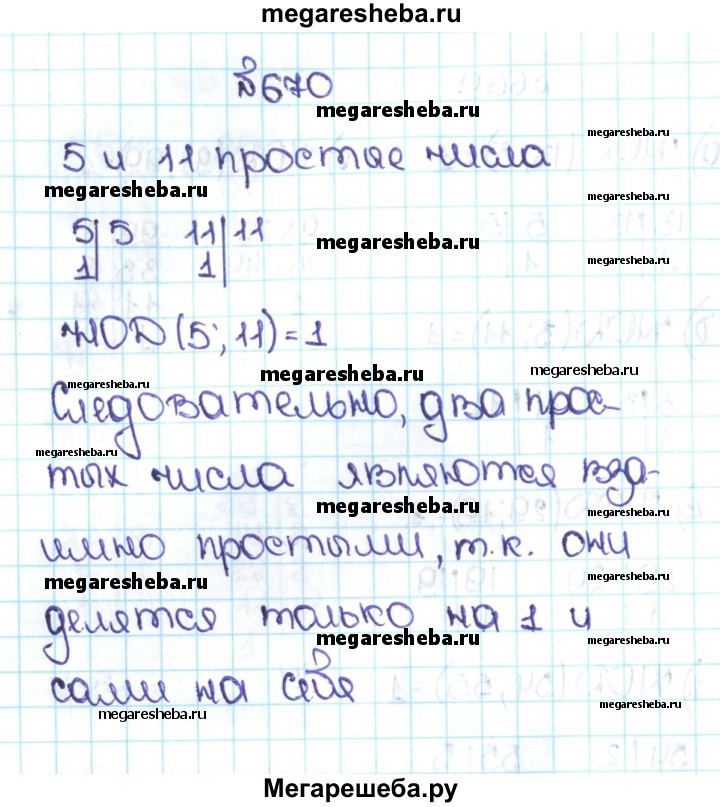 megaresheba.ru
№670
megaresheba.ru
megaresheba.ru
5 и 11 простые числа
megaresheba.ru
megaresheba.ru
5|5 11|11
megaresheba.ru
1| 1|
megaresheba.ru
НОД (5; 11) = 1
megaresheba.ru
megaresheba.ru
megaresheba.ru
Следовательно, два прос-
megaresheba.ru
тых числа являются вза-
megaresheba.ru
megaresheba.ru
имно простыми, т.к. они
megaresheba.ru
megaresheba.ru
делятся только на 1 и
megaresheba.ru
megaresheba.ru
сами на себя
megaresheba.ru
megaresheba.ru
Мегарешеба.ру